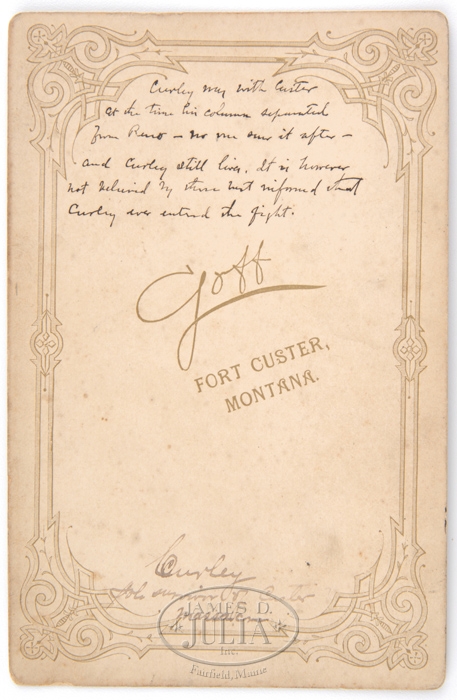 Curley was with Custer
at the time his column separated
from Reno — no one saw it after —
and Curley still lives. It is however
not believed by those best informed that
Curley ever entered the fight.
Goff
FORT CUSTER,
MONTANA.
Curley
Sole survivor of Custer
JAMES D.
JULIA
Inc.
Fairfield, Maine